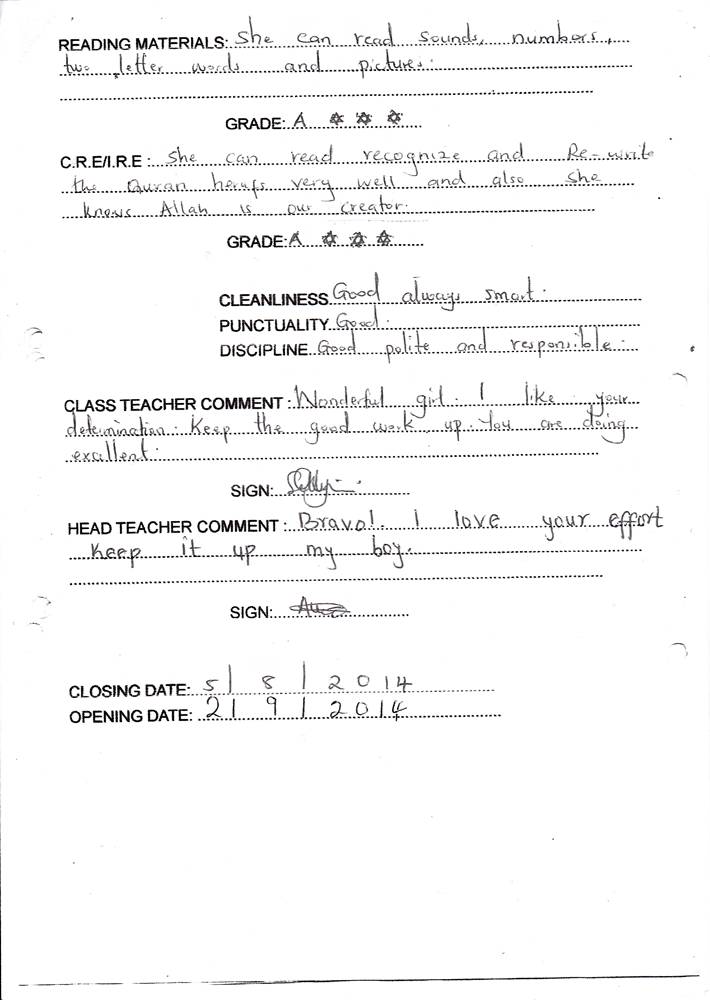 READING MATERIALS: She can read sounds, numbers,
two letter words and pictures.
GRADE: A ✡ ✡ ✡
C.R.E/I.R.E : She can read recognize and Re-write
the Quran herufs very well and also she
knows Allah is our creator.
GRADE: A ✡ ✡ ✡
CLEANLINESS Good always smart.
PUNCTUALITY Good.
DISCIPLINE Good polite and responsible.
CLASS TEACHER COMMENT : Wonderful girl. I like your
determination. Keep the good work up. You are doing
excellent.
SIGN:
HEAD TEACHER COMMENT : Bravo! I love your effort
Keep it up my boy.
SIGN:
CLOSING DATE: 5 / 8 / 2014
OPENING DATE: 2 / 9 / 2014